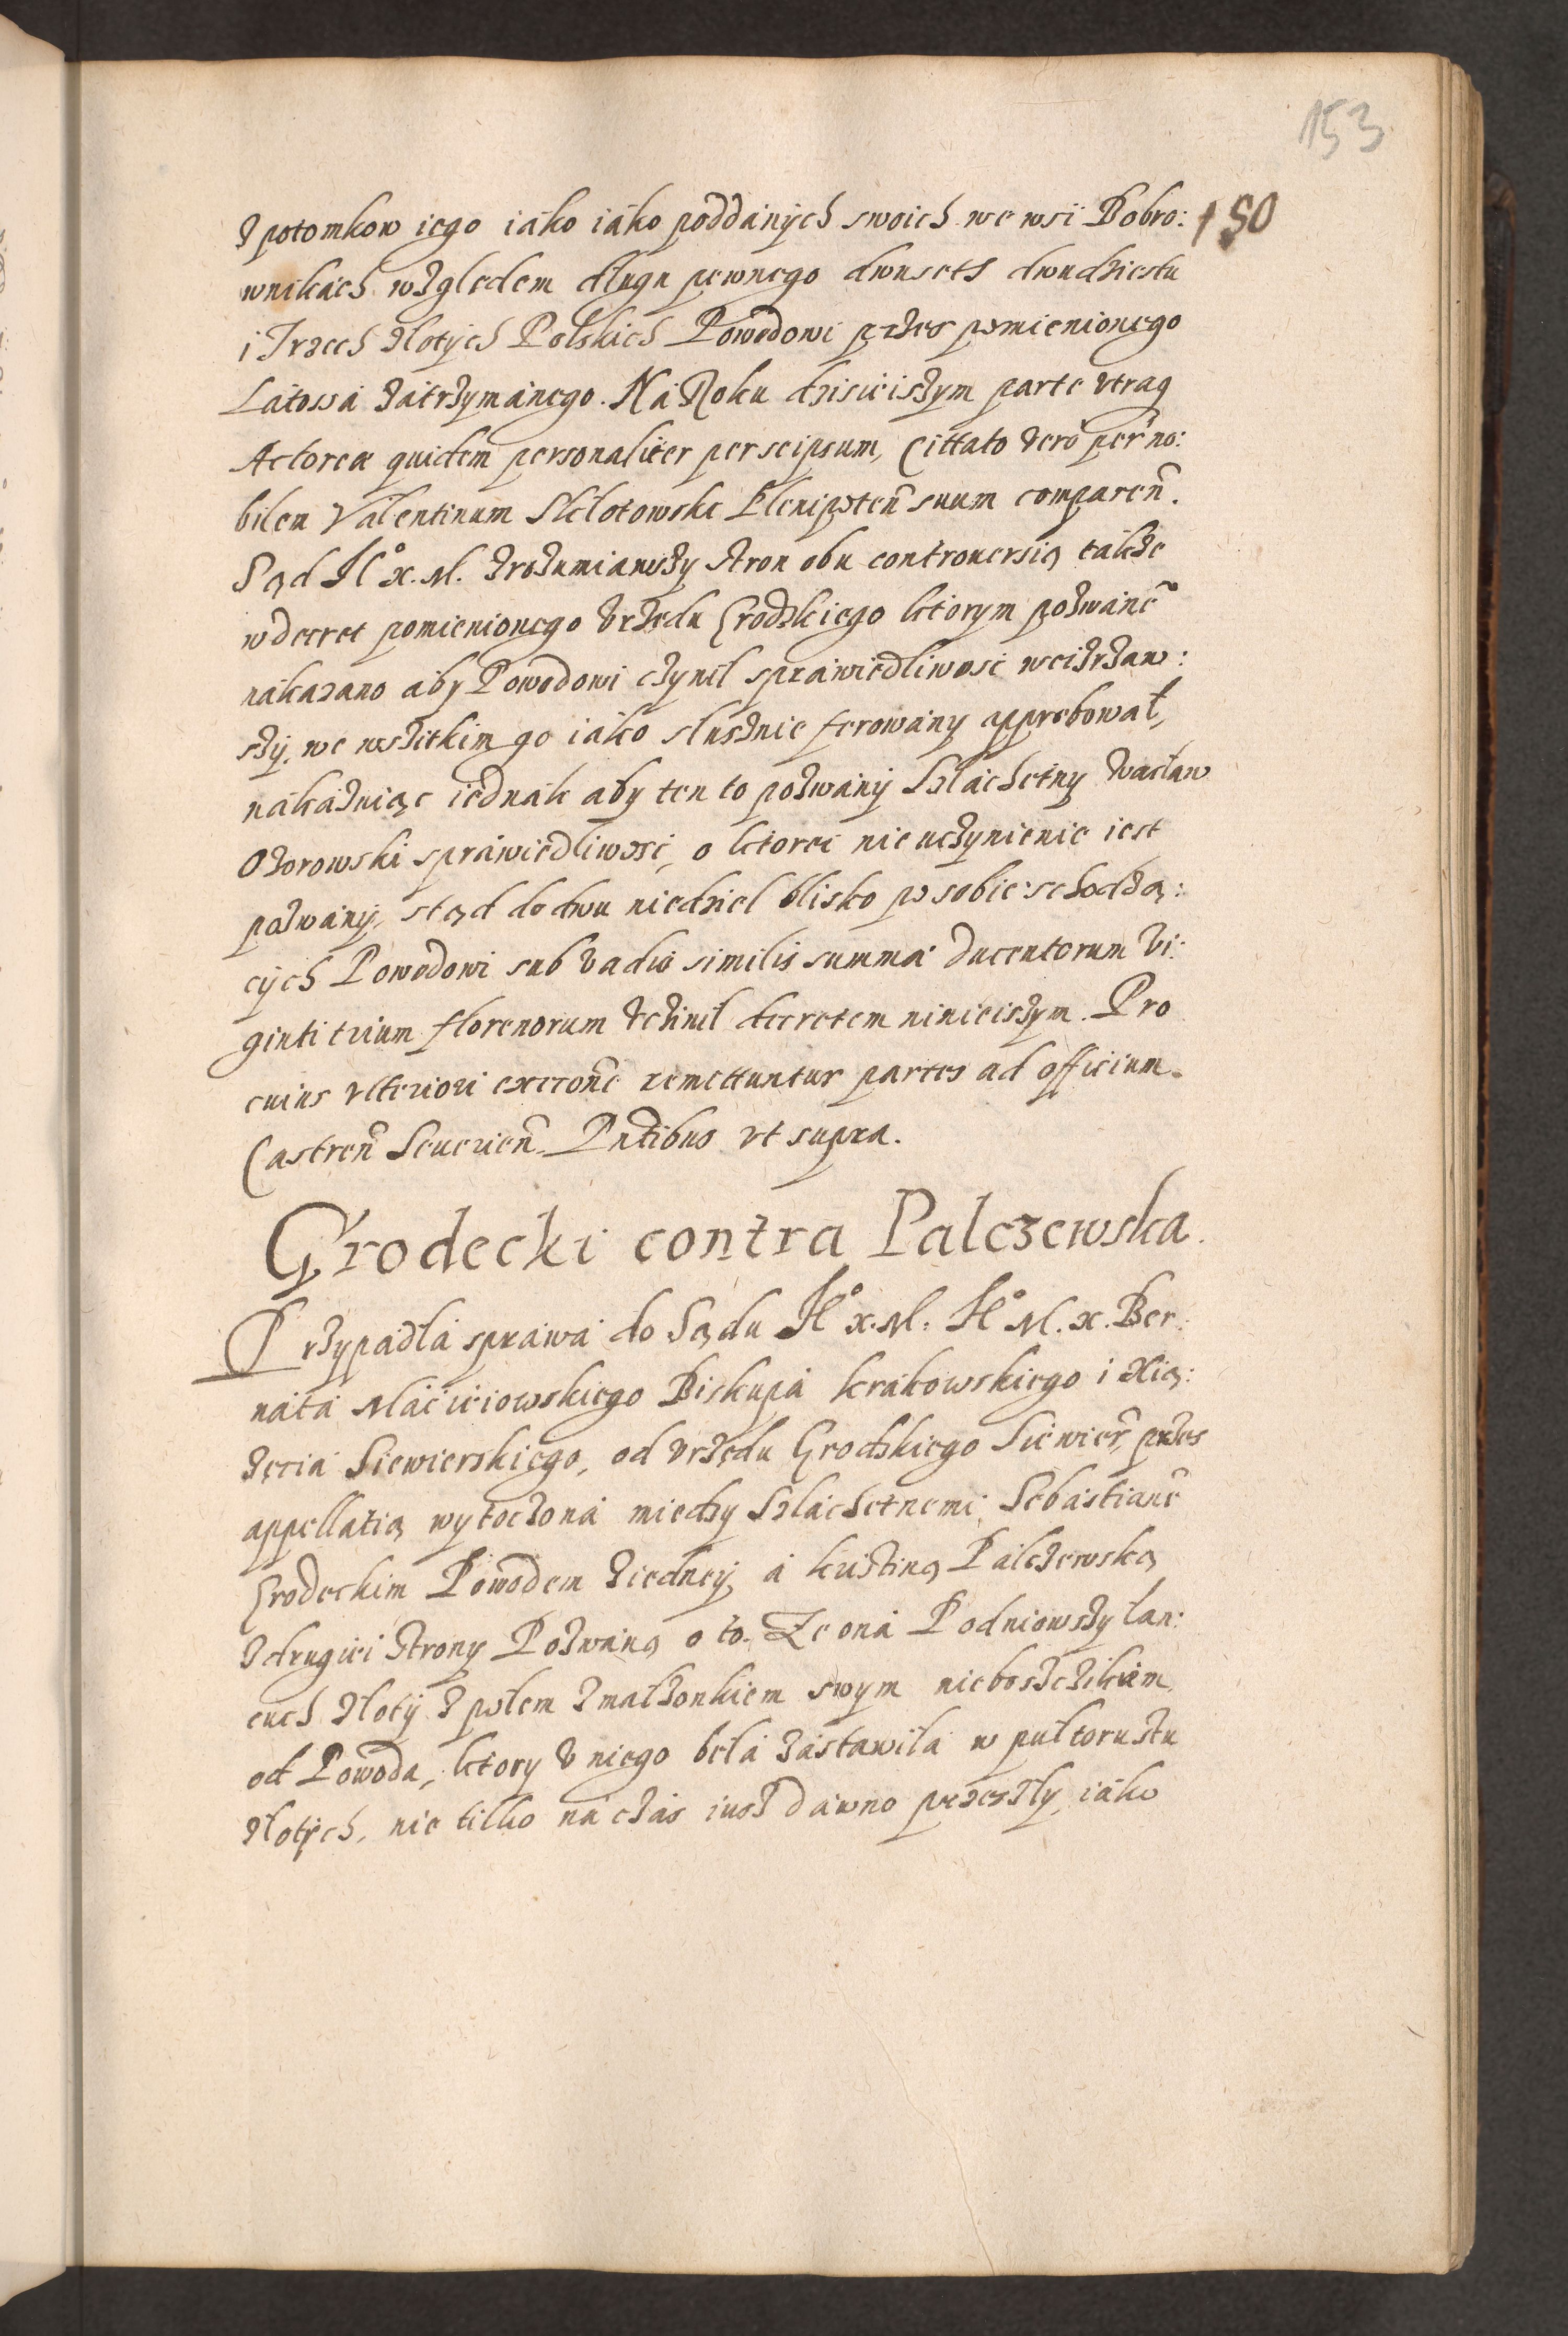 153
150
z potomkow iego iáko iáko poddánÿch swoich we wsi Bobro:
wnikách względem długu pewnego dwuseth dwudziestu
i Trzech złotÿch Polskich Powodowi przes pomienionego
Látossá zátrzymánego. Ná Roku dzisieiszym parte vtraq
Actorea quidem personaliter per seipsum, Cittato vero per no:
bilem Valentinum Sklotowski Plenipoten̄ suum comparen̄.
Sąd Jº x. M. zrozumiawszy stron obu controuersią tákze
w decret pomienionego vrzędu Grodzkiego ktorym pozwáne~
nákazano aby Powodowi czynil spráwiedliwosc weizrzaw:
szÿ, we wszitkim go iáko słusznie ferowany approbował,
nákázuiąc iednák aby ten to pozwánÿ Szláchetny Wacław
Ozorowski spráwiedliwosc, o ktorei nie uczynienie iest
pozwánÿ, stąd do dwu niedziel blisko po sobie schodzą:
cÿch Powodowi sub vadio similis summæ ducentorum vi:
ginti trium florenorum vczinil decretem ninieiszym. Pro
cuius vlteriori execōne remittuntur partes ad officium
Castren̄ Seuerien̄. Pn̄tibus vt supra.
Grodecki contra Palczewska.
Przypádłá spráwá do Sądu Jº x. M. Jº M. x. Ber:
nátá Máciciowskiego Biskupá krákowskiego i Xią:
zęcia Siewierskiego, od vrzędu Grodzkiego Siewier̄ przes
appellatią wytoczoná miedzy Szláchetnemi Sebástiane~
Grodeckim Powodem z iednÿ, á kristiną Pálczewską
z drugiei strony Pozwáną o to. Ze oná Podniowszy łan:
cuch złotÿ z polem z małzonkiem swym nieboszczikiem
od Powoda, ktory v niego belá zástawiłá w pułtorustu
złotÿch, nie tilko ná czás iusz dawno przeszły, iáko